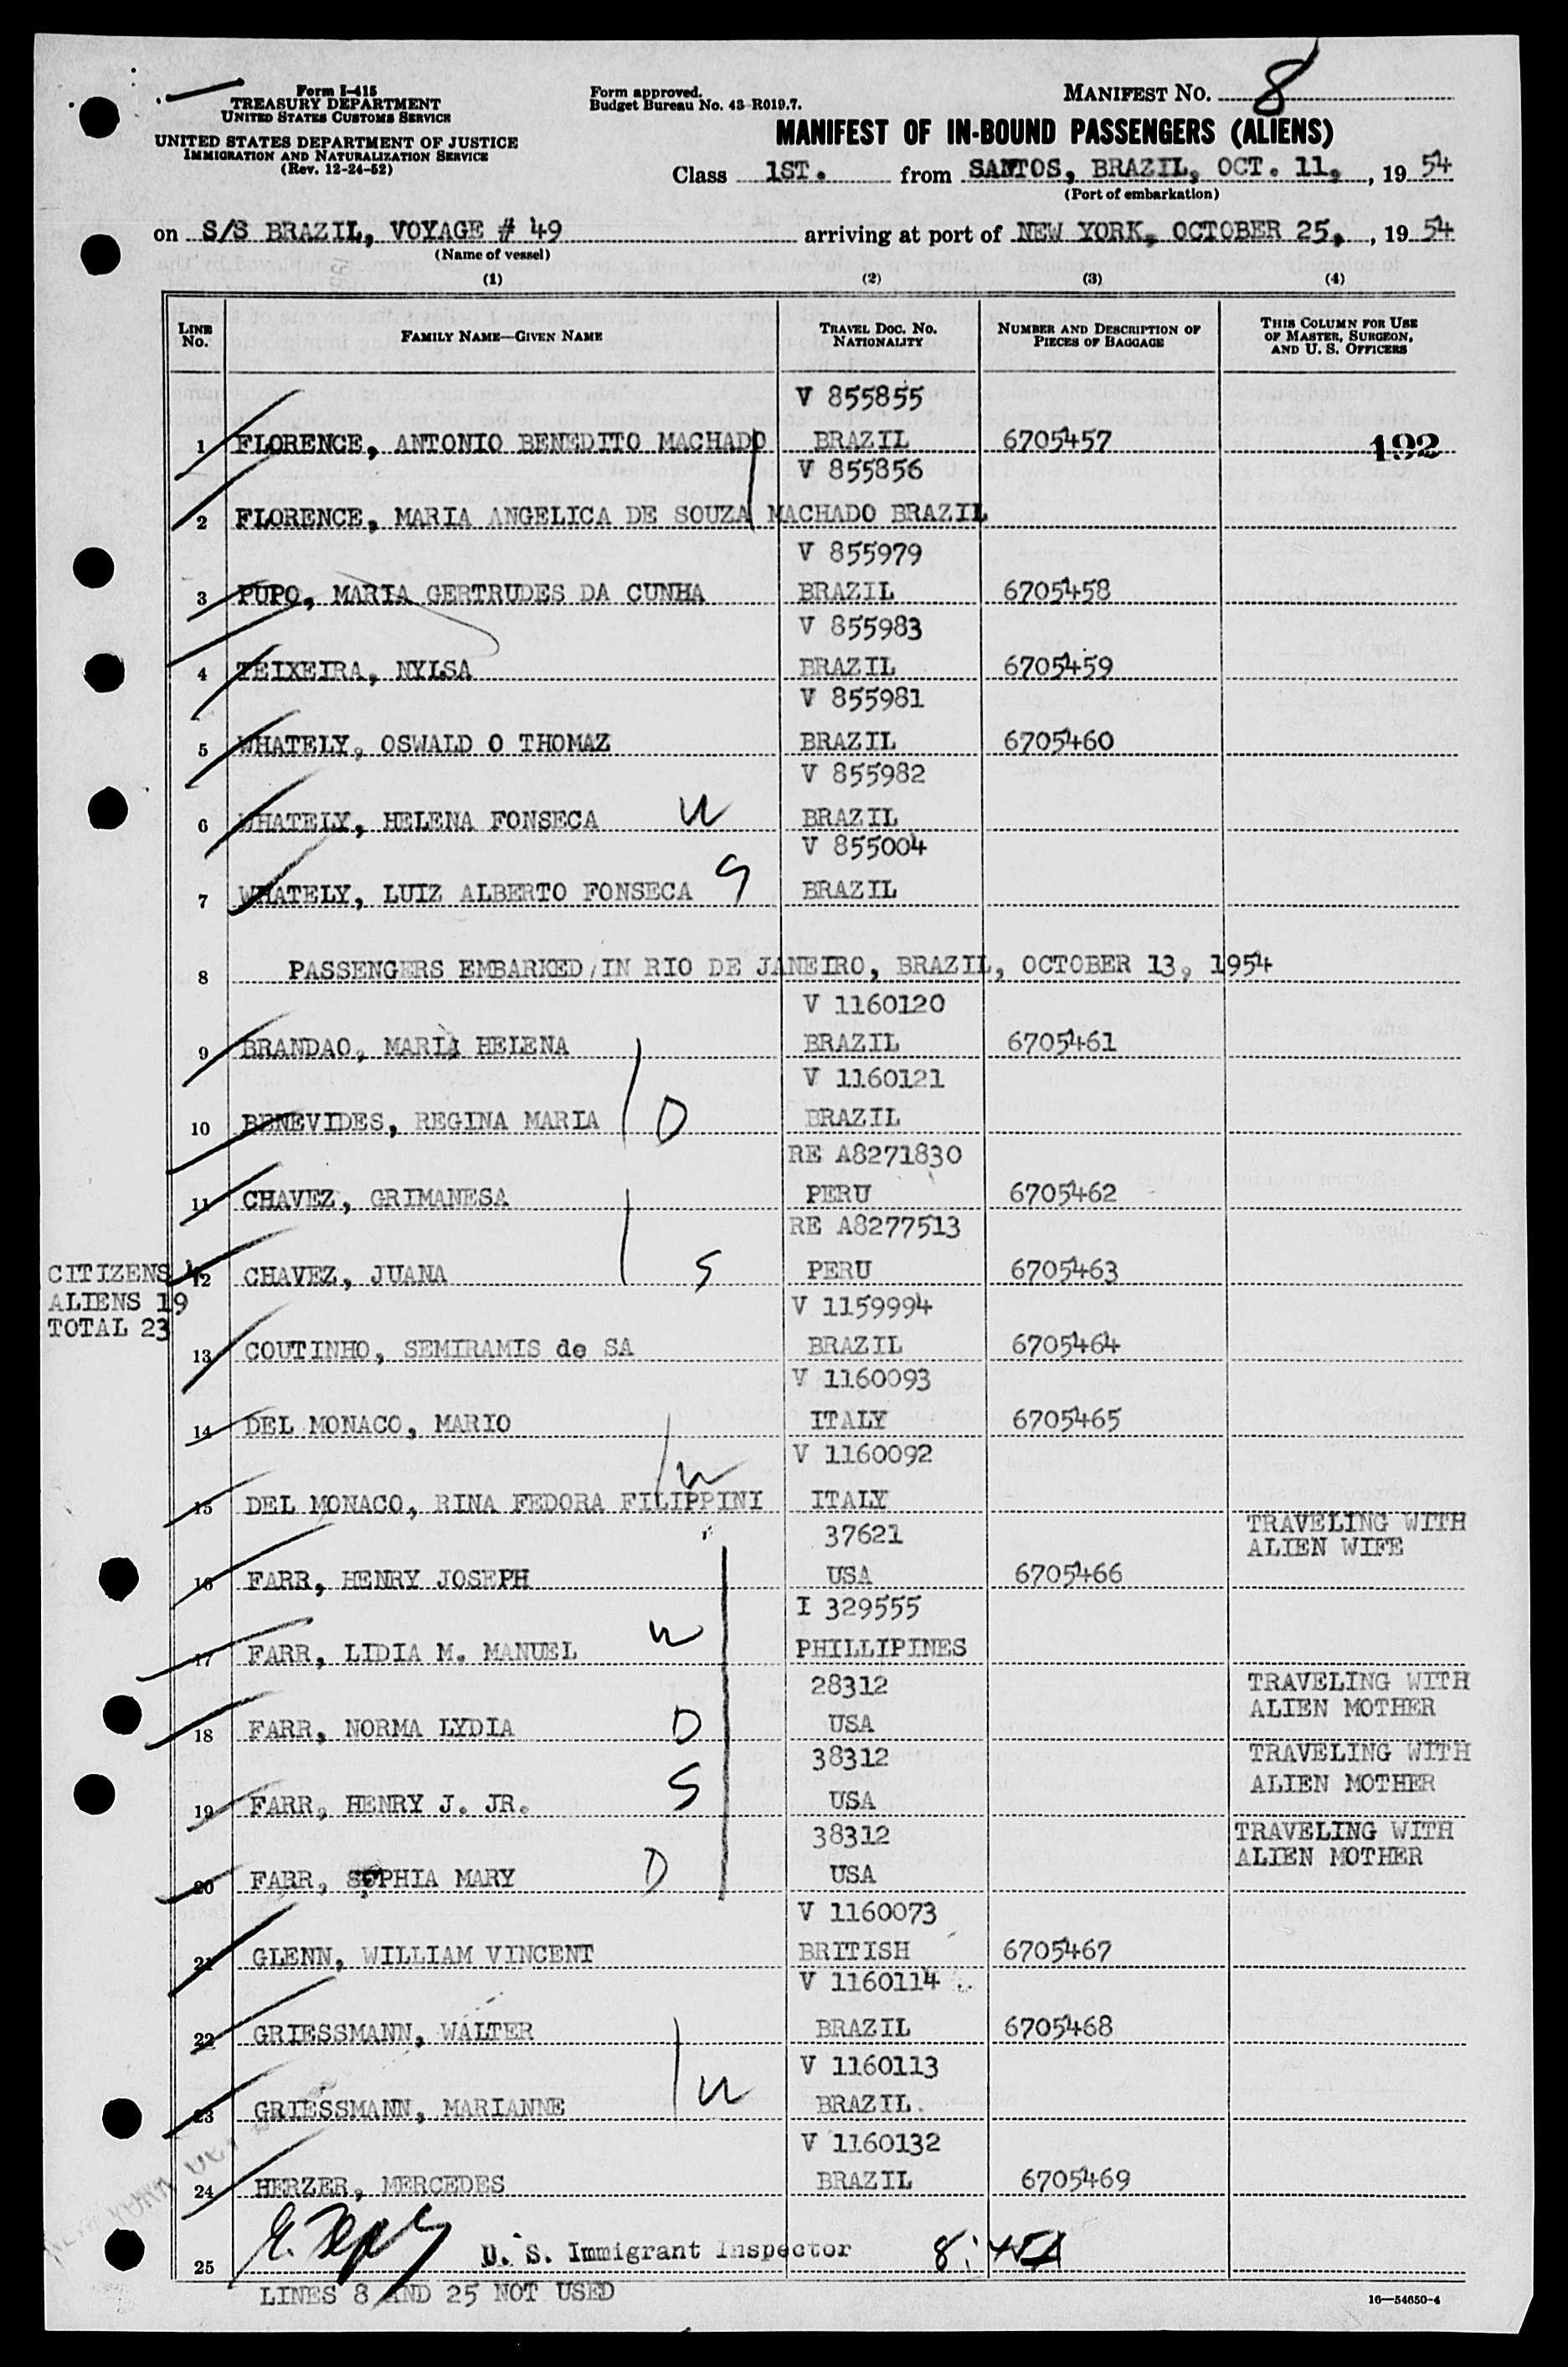 Form I-415
TREASURY DEPARTMENT
UNITED STATES CUSTOMS SERVICE
UNITED STATES DEPARTMENT OF JUSTICE
IMMIGRATION AND NATURALIZATION SERVICE
(Rev. 12-24-52)
Form approved.
Budget Bureau No. 43-R019.7.
MANIFEST NO. 8
MANIFEST OF IN-BOUND PASSENGERS (ALIENS)
Class 1ST. from SANTOS, BRAZIL, OCT. 11, , 19 54
(Port of embarkation)
on S/S BRAZIL, VOYAGE # 49 arriving at port of NEW YORK, OCTOBER 25, , 19 54
(Name of vessel)
(1) (2) (3) (4)
LINE NO. FAMILY NAME—GIVEN NAME TRAVEL DOC. NO. NATIONALITY NUMBER AND DESCRIPTION OF PIECES OF BAGGAGE THIS COLUMN FOR USE OF MASTER, SURGEON, AND U. S. OFFICERS
V 855855
1 FLORENCE, ANTONIO BENEDITO MACHADO BRAZIL 6705457 192
V 855856
2 FLORENCE, MARIA ANGELICA DE SOUZA MACHADO BRAZIL
V 855979
3 PUPO, MARIA GERTRUDES DA CUNHA BRAZIL 6705458
V 855983
4 TEIXEIRA, NYLSA BRAZIL 6705459
V 855981
5 WHATELY, OSWALD O THOMAZ BRAZIL 6705460
V 855982
6 WHATELY, HELENA FONSECA W BRAZIL
V 855004
7 WHATELY, LUIZ ALBERTO FONSECA S BRAZIL
8 PASSENGERS EMBARKED IN RIO DE JANEIRO, BRAZIL, OCTOBER 13, 1954
V 1160120
9 BRANDAO, MARIA HELENA BRAZIL 6705461
V 1160121
10 BENEVIDES, REGINA MARIA D BRAZIL
RE A8271830
11 CHAVEZ, GRIMANESA PERU 6705462
RE A8277513
12 CHAVEZ, JUANA S PERU 6705463
CITIZENS 4
ALIENS 19
TOTAL 23
V 1159994
13 COUTINHO, SEMIRAMIS de SA BRAZIL 6705464
V 1160093
14 DEL MONACO, MARIO ITALY 6705465
V 1160092
15 DEL MONACO, RINA FEDORA FILIPPINI W ITALY
37621 TRAVELING WITH ALIEN WIFE
16 FARR, HENRY JOSEPH USA 6705466
I 329555
17 FARR, LIDIA M. MANUEL W PHILLIPINES
28312 TRAVELING WITH ALIEN MOTHER
18 FARR, NORMA LYDIA D USA
38312 TRAVELING WITH ALIEN MOTHER
19 FARR, HENRY J. JR. S USA
38312 TRAVELING WITH ALIEN MOTHER
20 FARR, SOPHIA MARY D USA
V 1160073
21 GLENN, WILLIAM VINCENT BRITISH 6705467
V 1160114
22 GRIESSMANN, WALTER BRAZIL 6705468
V 1160113
23 GRIESSMANN, MARIANNE W BRAZIL.
V 1160132
24 HERZER, MERCEDES BRAZIL 6705469
25 U. S. Immigrant Inspector
LINES 8 AND 25 NOT USED
16—54650-4